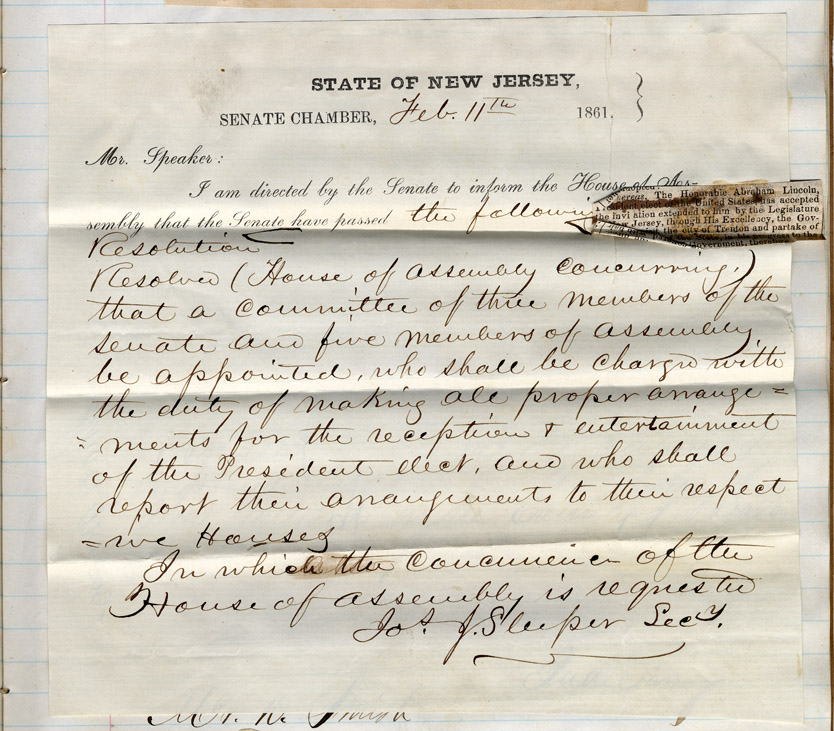 STATE OF NEW JERSEY,
SENATE CHAMBER, Feb. 11th 1861. }
Mr. Speaker:
I am directed by the Senate to inform the House of As-
sembly that the Senate have passed the following
The Honorable Abraham Lincoln,
United States, has accepted
the invi ation extended to him by the Legislature
Jersey, through His Excellency, the Gov-
the city of Trenton and partake of
Government, therefore
Resolution
Resolved (House of Assembly Concurring,)
that a Committee of three members of the
Senate and five members of Assembly
be appointed, who shall be charged with
the duty of making all proper arrange=
=ments for the reception & entertainment
of the President elect, and who shall
report their arrangements to their respect
=ive Houses
In which the Concurrence of the
House of Assembly is requested
Jos. J. Sleeper Secy.
Mr.